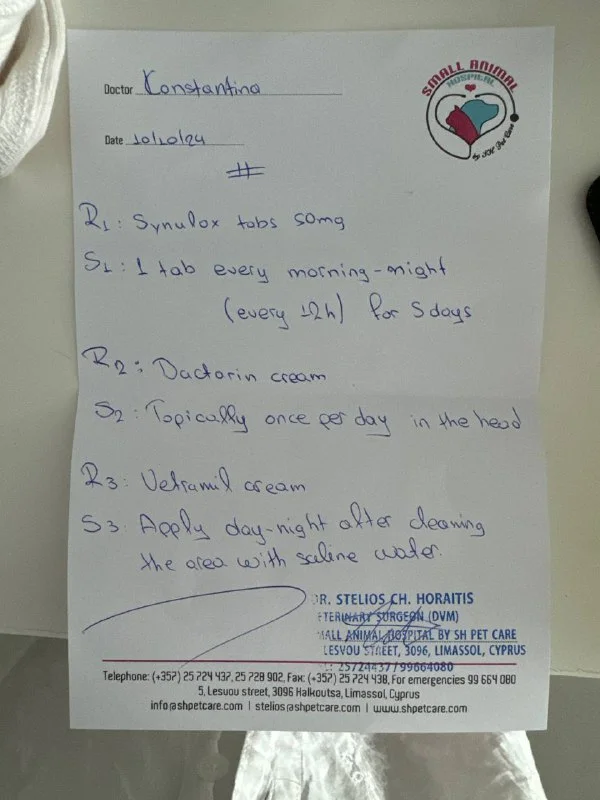 SMALL ANIMAL
HOSPITAL
by SH Pet Care
Doctor Konstantina
Date 10/10/24
#
R1: Synulox tabs 50mg
S1: 1 tab every morning-night
(every 12h) for 5 days
R2: Dactarin cream
S2: Topically once per day in the head
R3: Vetramil cream
S3: Apply day-night after cleaning
the area with saline water.
DR. STELIOS CH. HORAITIS
VETERINARY SURGEON (DVM)
SMALL ANIMAL HOSPITAL BY SH PET CARE
LESVOU STREET, 3096, LIMASSOL, CYPRUS
25724437 / 99664080
Telephone: (+357) 25 724 437, 25 728 902, Fax: (+357) 25 724 438, For emergencies 99 664 080
5, Lesvou street, 3096 Halkoutsa, Limassol, Cyprus
info@shpetcare.com | stelios@shpetcare.com | www.shpetcare.com